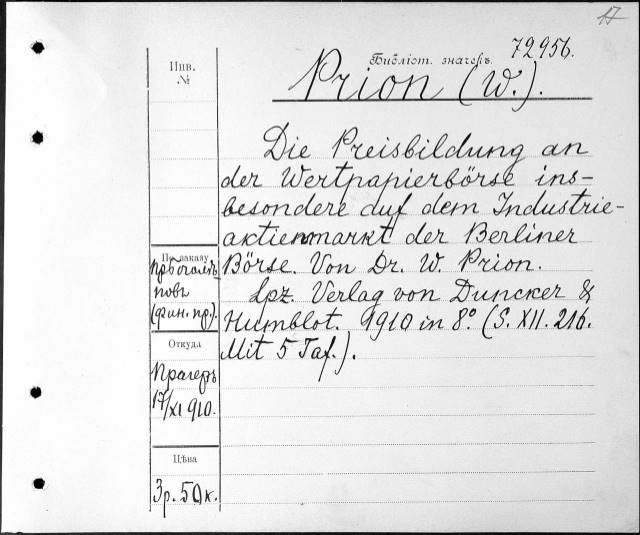 17
72956.
Библіот. значекъ.
Prion (W.).
Инв.
№
Die Preisbildung an
der Wertpapierbörse ins-
besondere auf dem Industrie-
aktienmarkt der Berliner
Börse. Von Dr. W. Prion.
Lpz. Verlag von Duncker &
Humblot. 1910 in 8º. (S. XII. 216.
Mit 5 Taf.).
По заказу
новъ
(фин. пр.).
Откуда
Прагеръ
17/XI 910.
Цѣна
3р. 50к.